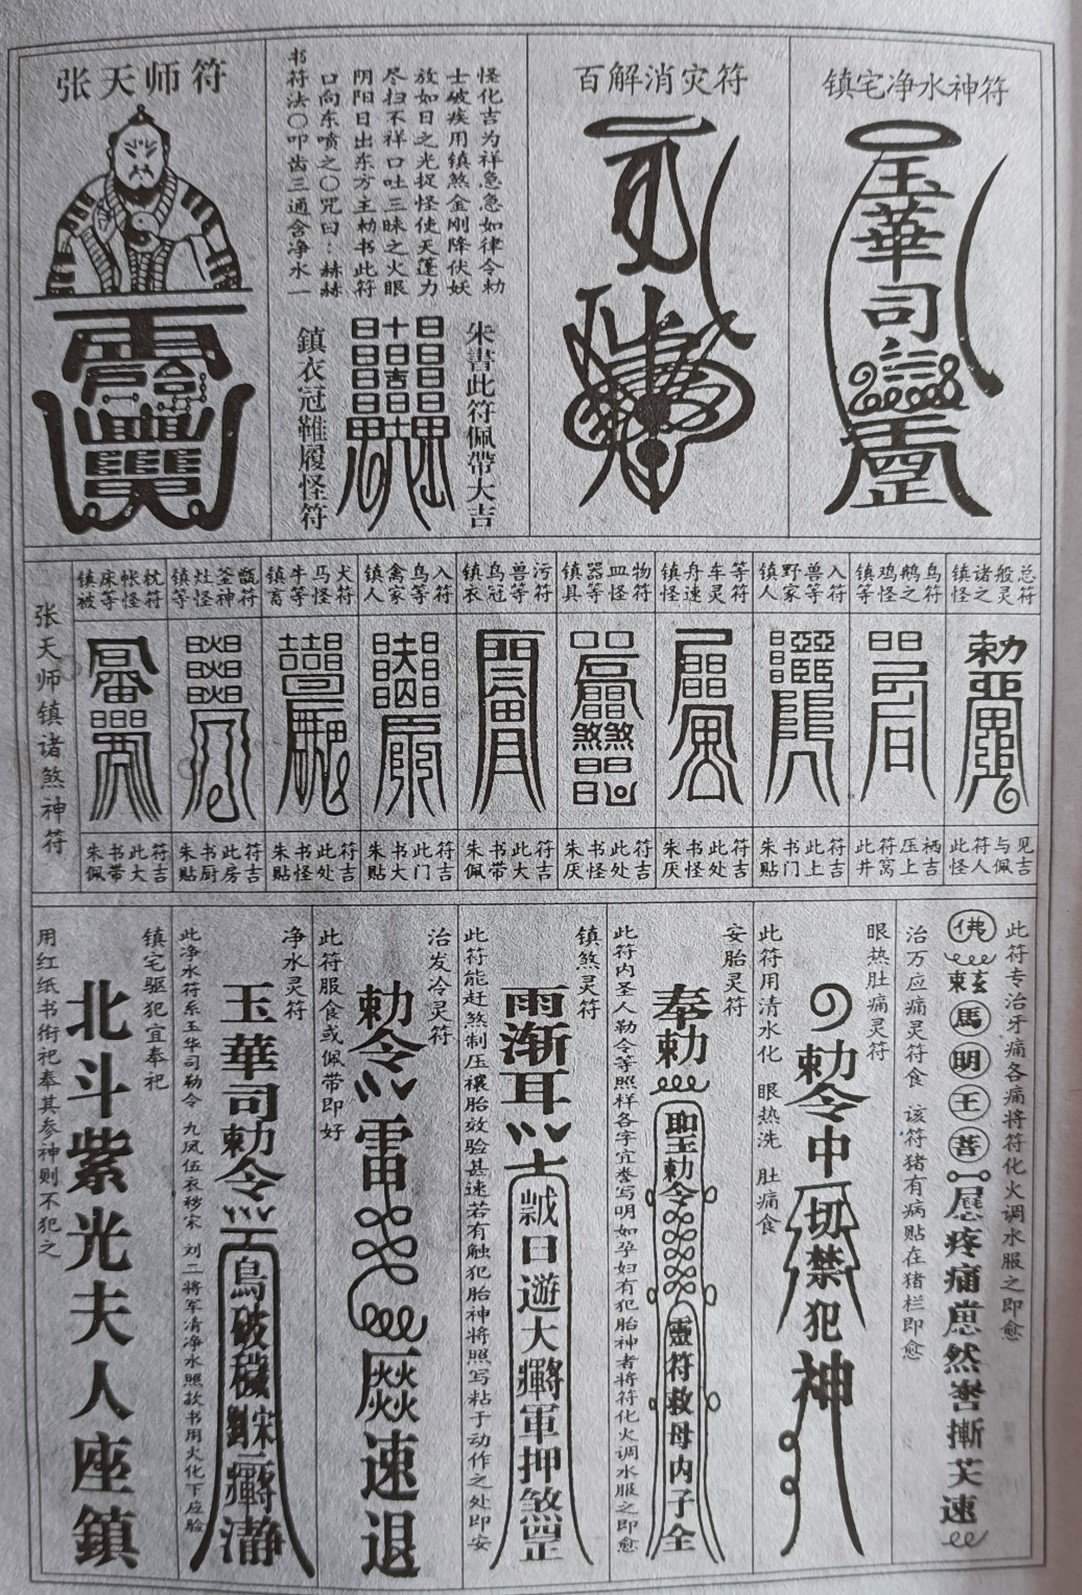 镇宅净水神符
玉華司
百解消灾符
怪化吉为祥急急如律令勅
士破疾用镇煞金刚降伏妖
放如日之光捉怪使天蓬力
尽扫不祥口吐三昧之火眼
阴阳日出东方主勅书此符
口向东喷之〇咒曰：赫赫
书符法〇叩齿三通含净水一
朱書此符佩帶大吉
鎮衣冠鞋履怪符
张天师符
张天师镇诸煞神符
总符
般灵
诸之
镇怪
鸟符
鹅之
鸡怪
镇等
入符
兽等
野家
镇人
等符
车灵
舟速
镇怪
物符
皿怪
器等
镇具
污符
兽等
鸟冠
镇衣
入符
鸟等
禽家
镇人
犬符
马怪
牛等
镇畜
甑符
釜神
灶怪
镇等
枕符
帐怪
床等
镇被
勅
见吉
与佩
符人
此怪
栖吉
压上
符窝
此井
符吉
此上
书门
朱贴
符吉
此处
书怪
朱厌
符吉
此处
书怪
朱厌
符吉
此大
书带
朱佩
符吉
此门
书大
朱贴
符吉
此处
书怪
朱贴
符吉
此房
书厨
朱贴
符吉
此大
书带
朱佩
此符专治牙痛各痛将符化火调水服之即愈
佛
馬明王菩
疼痛
然
速
治万应痛灵符食 该符猪有病贴在猪栏即愈
眼热肚痛灵符
勅令中一切禁犯神
此符用清水化 眼热洗 肚痛食
安胎灵符
奉勅
聖勅令
靈符救母内子全
此符内圣人勒令等照样各字宜誊写明如孕妇有犯胎神者将符化火调水服之即愈
镇煞灵符
雨渐耳
日遊大
軍押煞罡
此符能赶煞制压禳胎效验甚速若有触犯胎神将照写粘于动作之处即安
治发冷灵符
勅令雷
速退
此符服食或佩带即好
净水灵符
玉華司勅令
鳥破穢
劉宋二
瀞
此净水符系玉华司勒令 九凤伍衣秽宋 刘二将军清净水照款书用火化下应验
镇宅驱犯宜奉祀
北斗紫光夫人座鎮
用红纸书衔祀奉其参神则不犯之